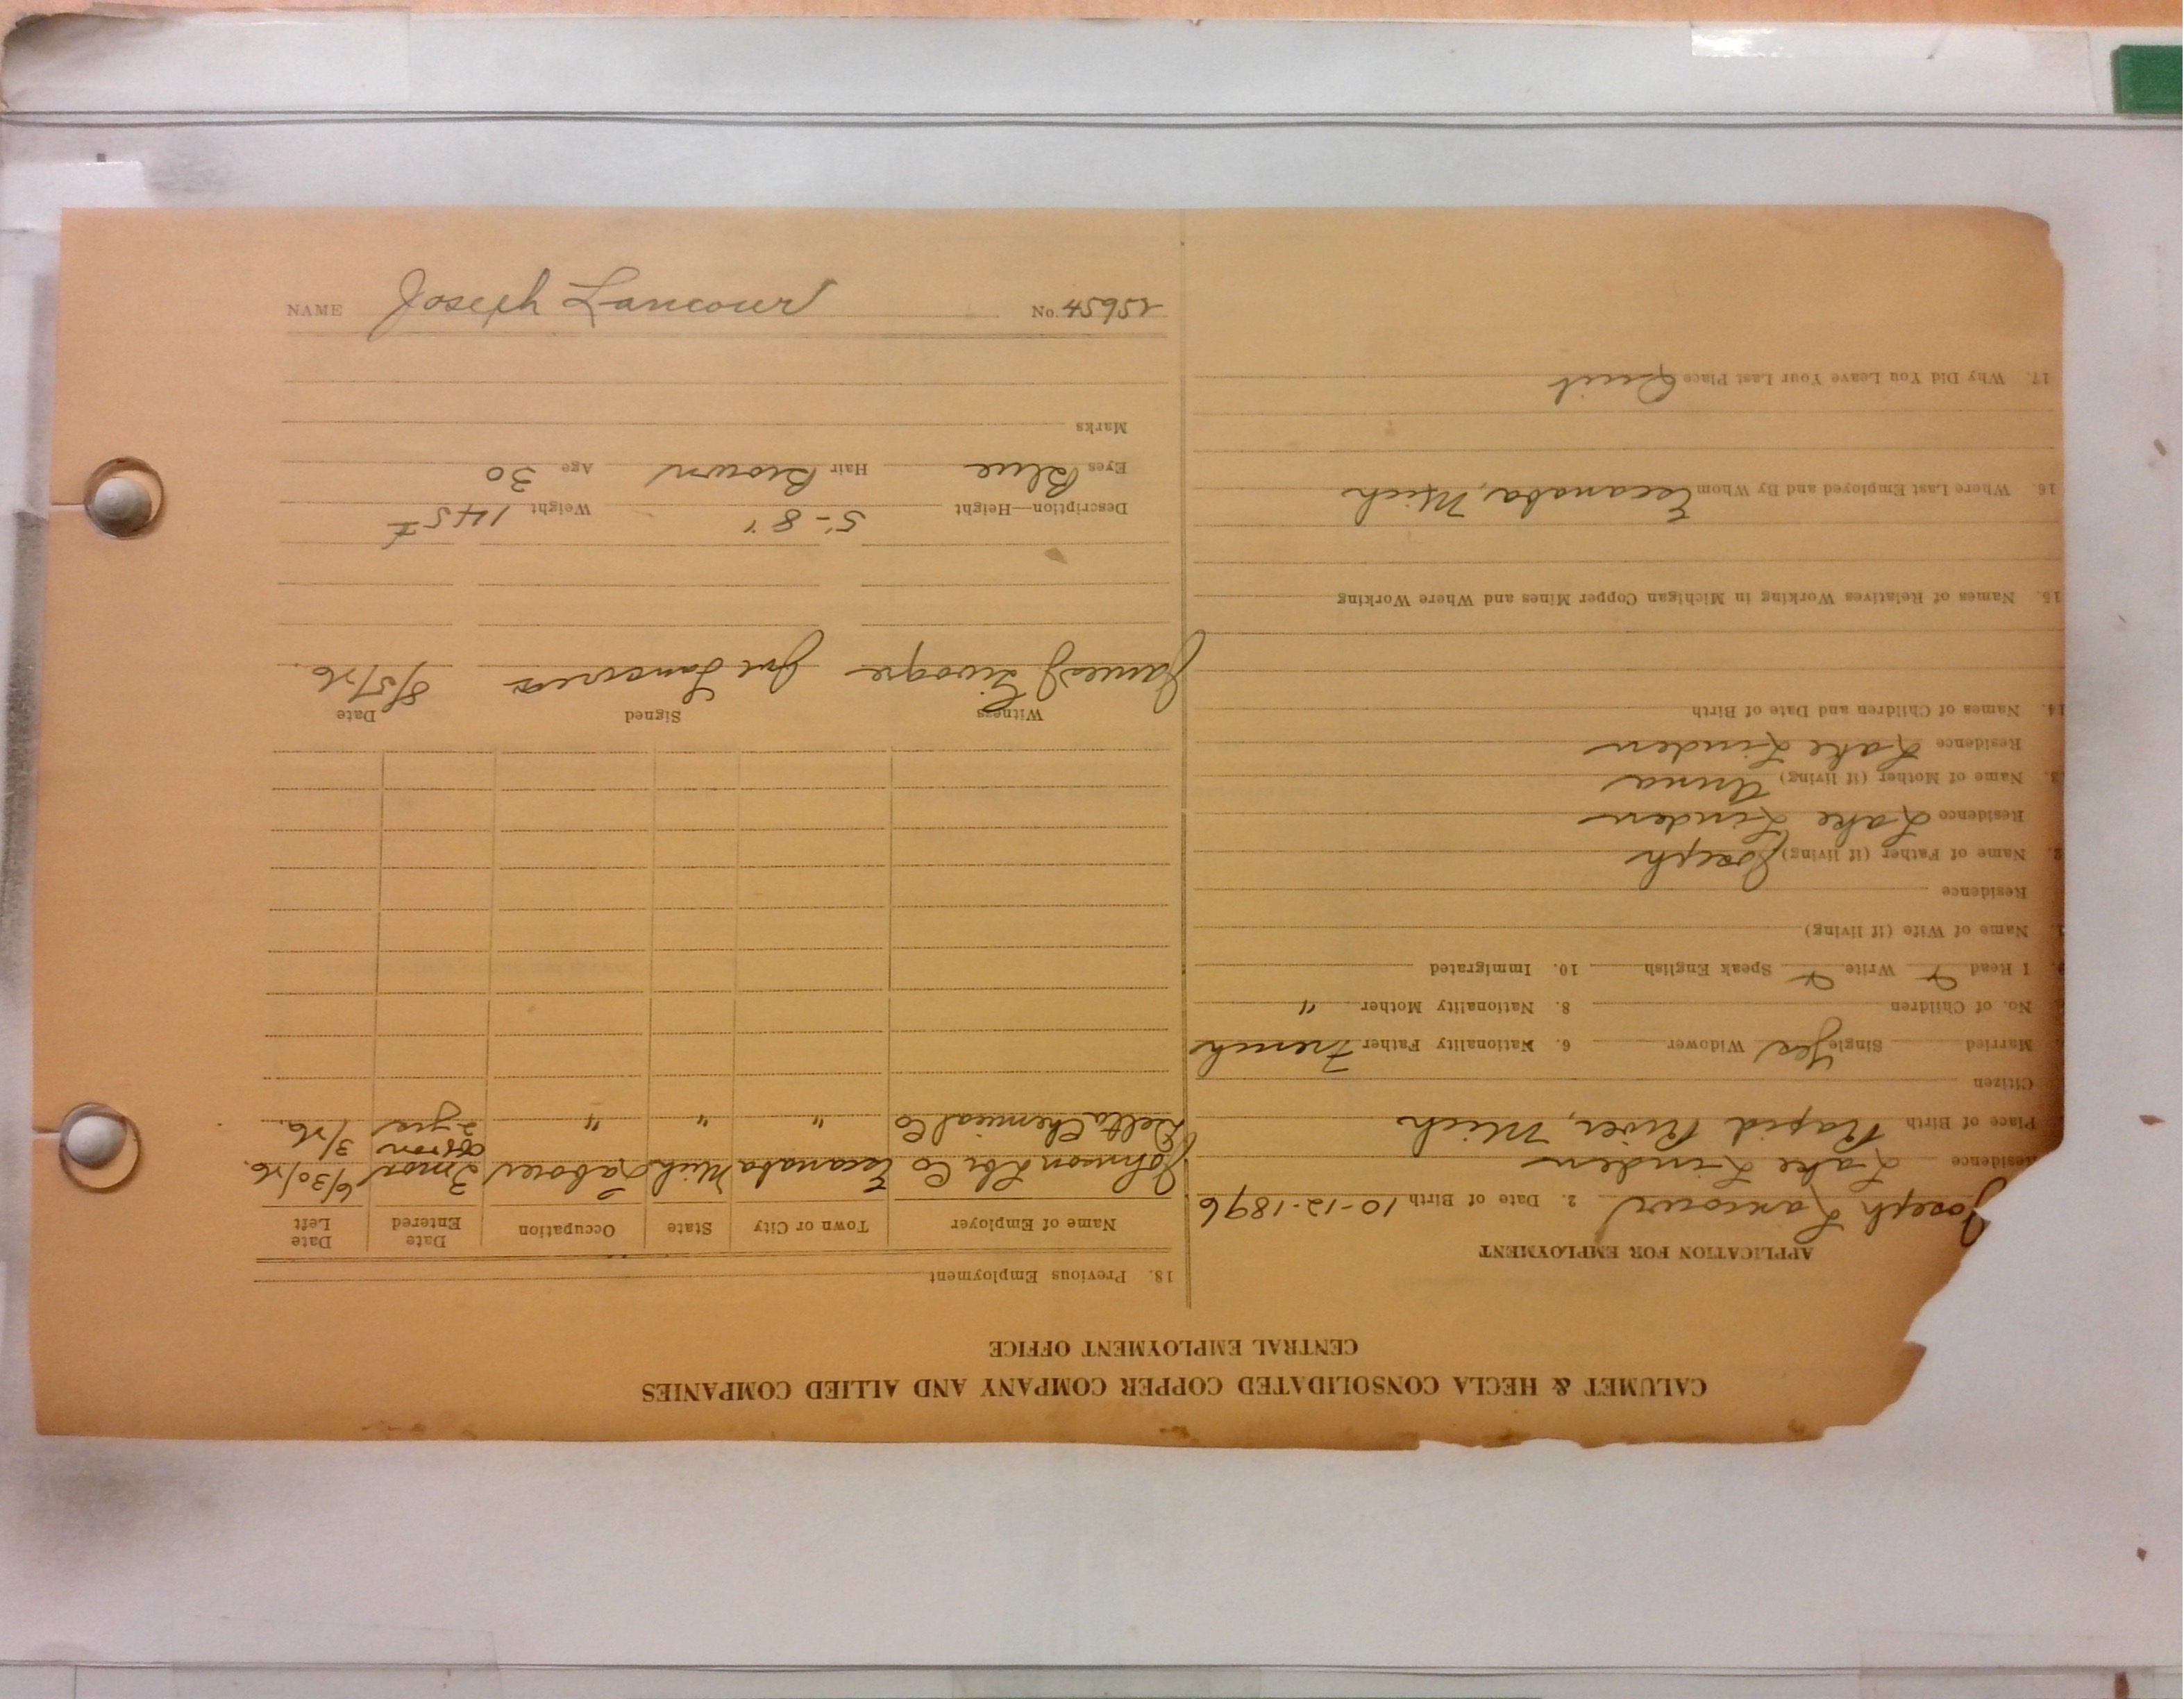 CALUMET & HECLA CONSOLIDATED COPPER COMPANY AND ALLIED COMPANIES
CENTRAL EMPLOYMENT OFFICE
APPLICATION FOR EMPLOYMENT
Joseph Lancour 2. Date of Birth 10-12-1896
Residence Lake Linden
Place of Birth Rapid River, Mich
Citizen
Married Single Yes Widower 6. Nationality Father French
No. of Children 8. Nationality Mother "
I Read Write Speak English 10. Immigrated
Name of Wife (if living)
Residence
2. Name of Father (if living) Joseph
Residence Lake Linden
3. Name of Mother (if living) Anna
Residence Lake Linden
14. Names of Children and Date of Birth
15. Names of Relatives Working in Michigan Copper Mines and Where Working
16. Where Last Employed and By Whom Escanaba, Mich
17. Why Did You Leave Your Last Place Quit
18. Previous Employment
Name of Employer Town or City State Occupation Date Entered Date Left
Johnson Lbr Co Escanaba Mich Laborer 3 mos 6/30/26.
Delta Chemical Co " " " 2 yrs 3/26.
Witness Signed Date
James Joe Lancour 8/5/26.
Description—Height 5'-8" Weight 145#
Eyes Blue Hair Brown Age 30
Marks
NAME Joseph Lancour No. 15654